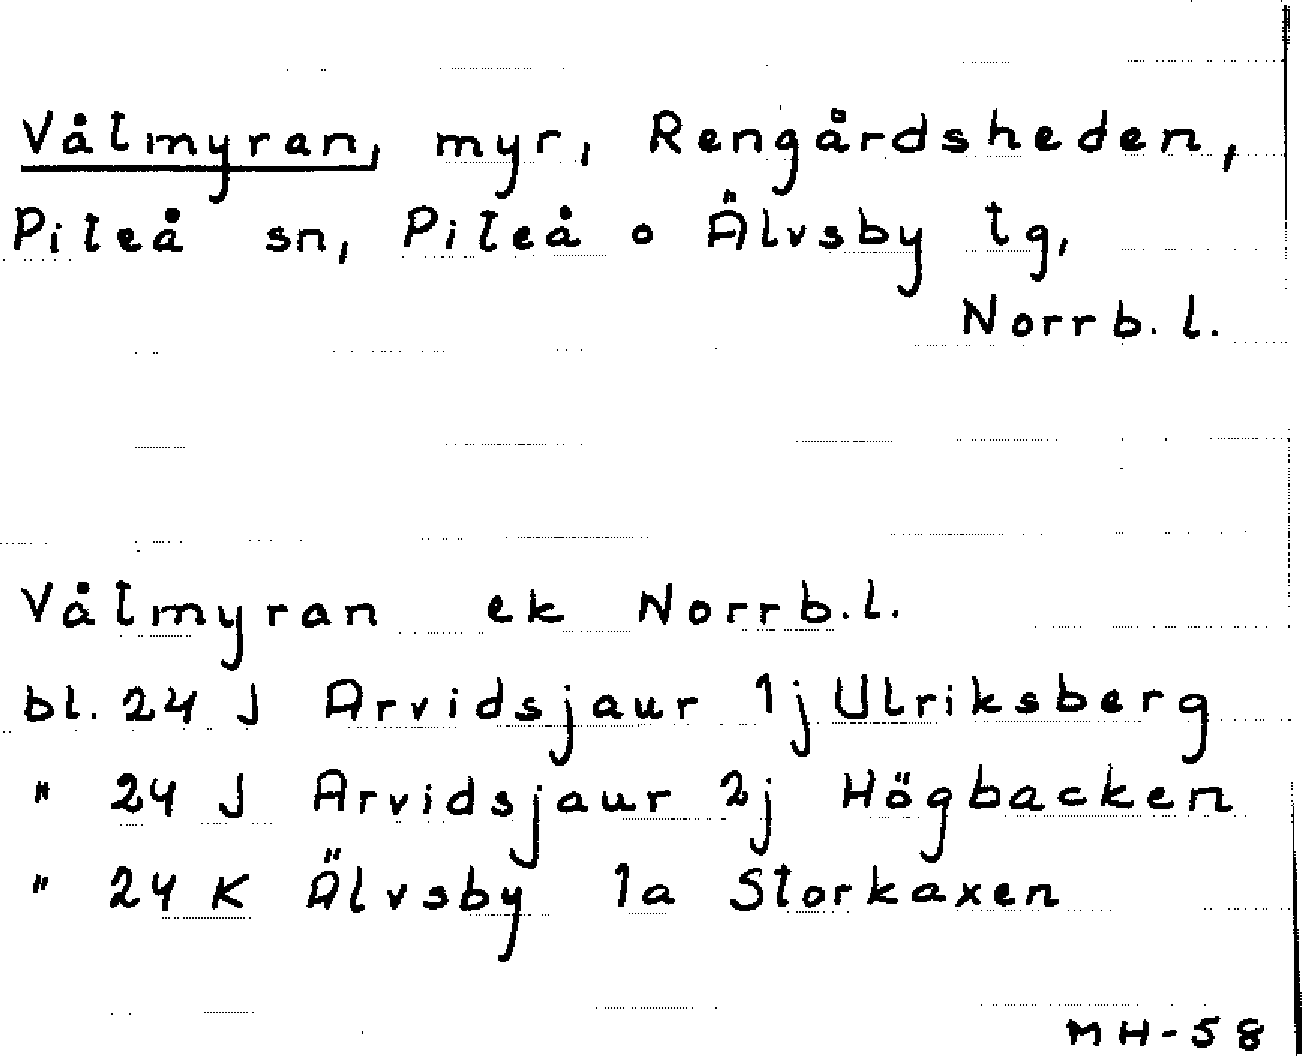 Våtmyran, myr, Rengårdsheden,
Piteå sn, Piteå o Älvsby tg,
Norrb.l.
Våtmyran ek Norrb.l.
bl. 24 J Arvidsjaur 1j Ulriksberg
" 24 J Arvidsjaur 2j Högbacken
" 24 K Älvsby 1a Storkaxen
MH-58